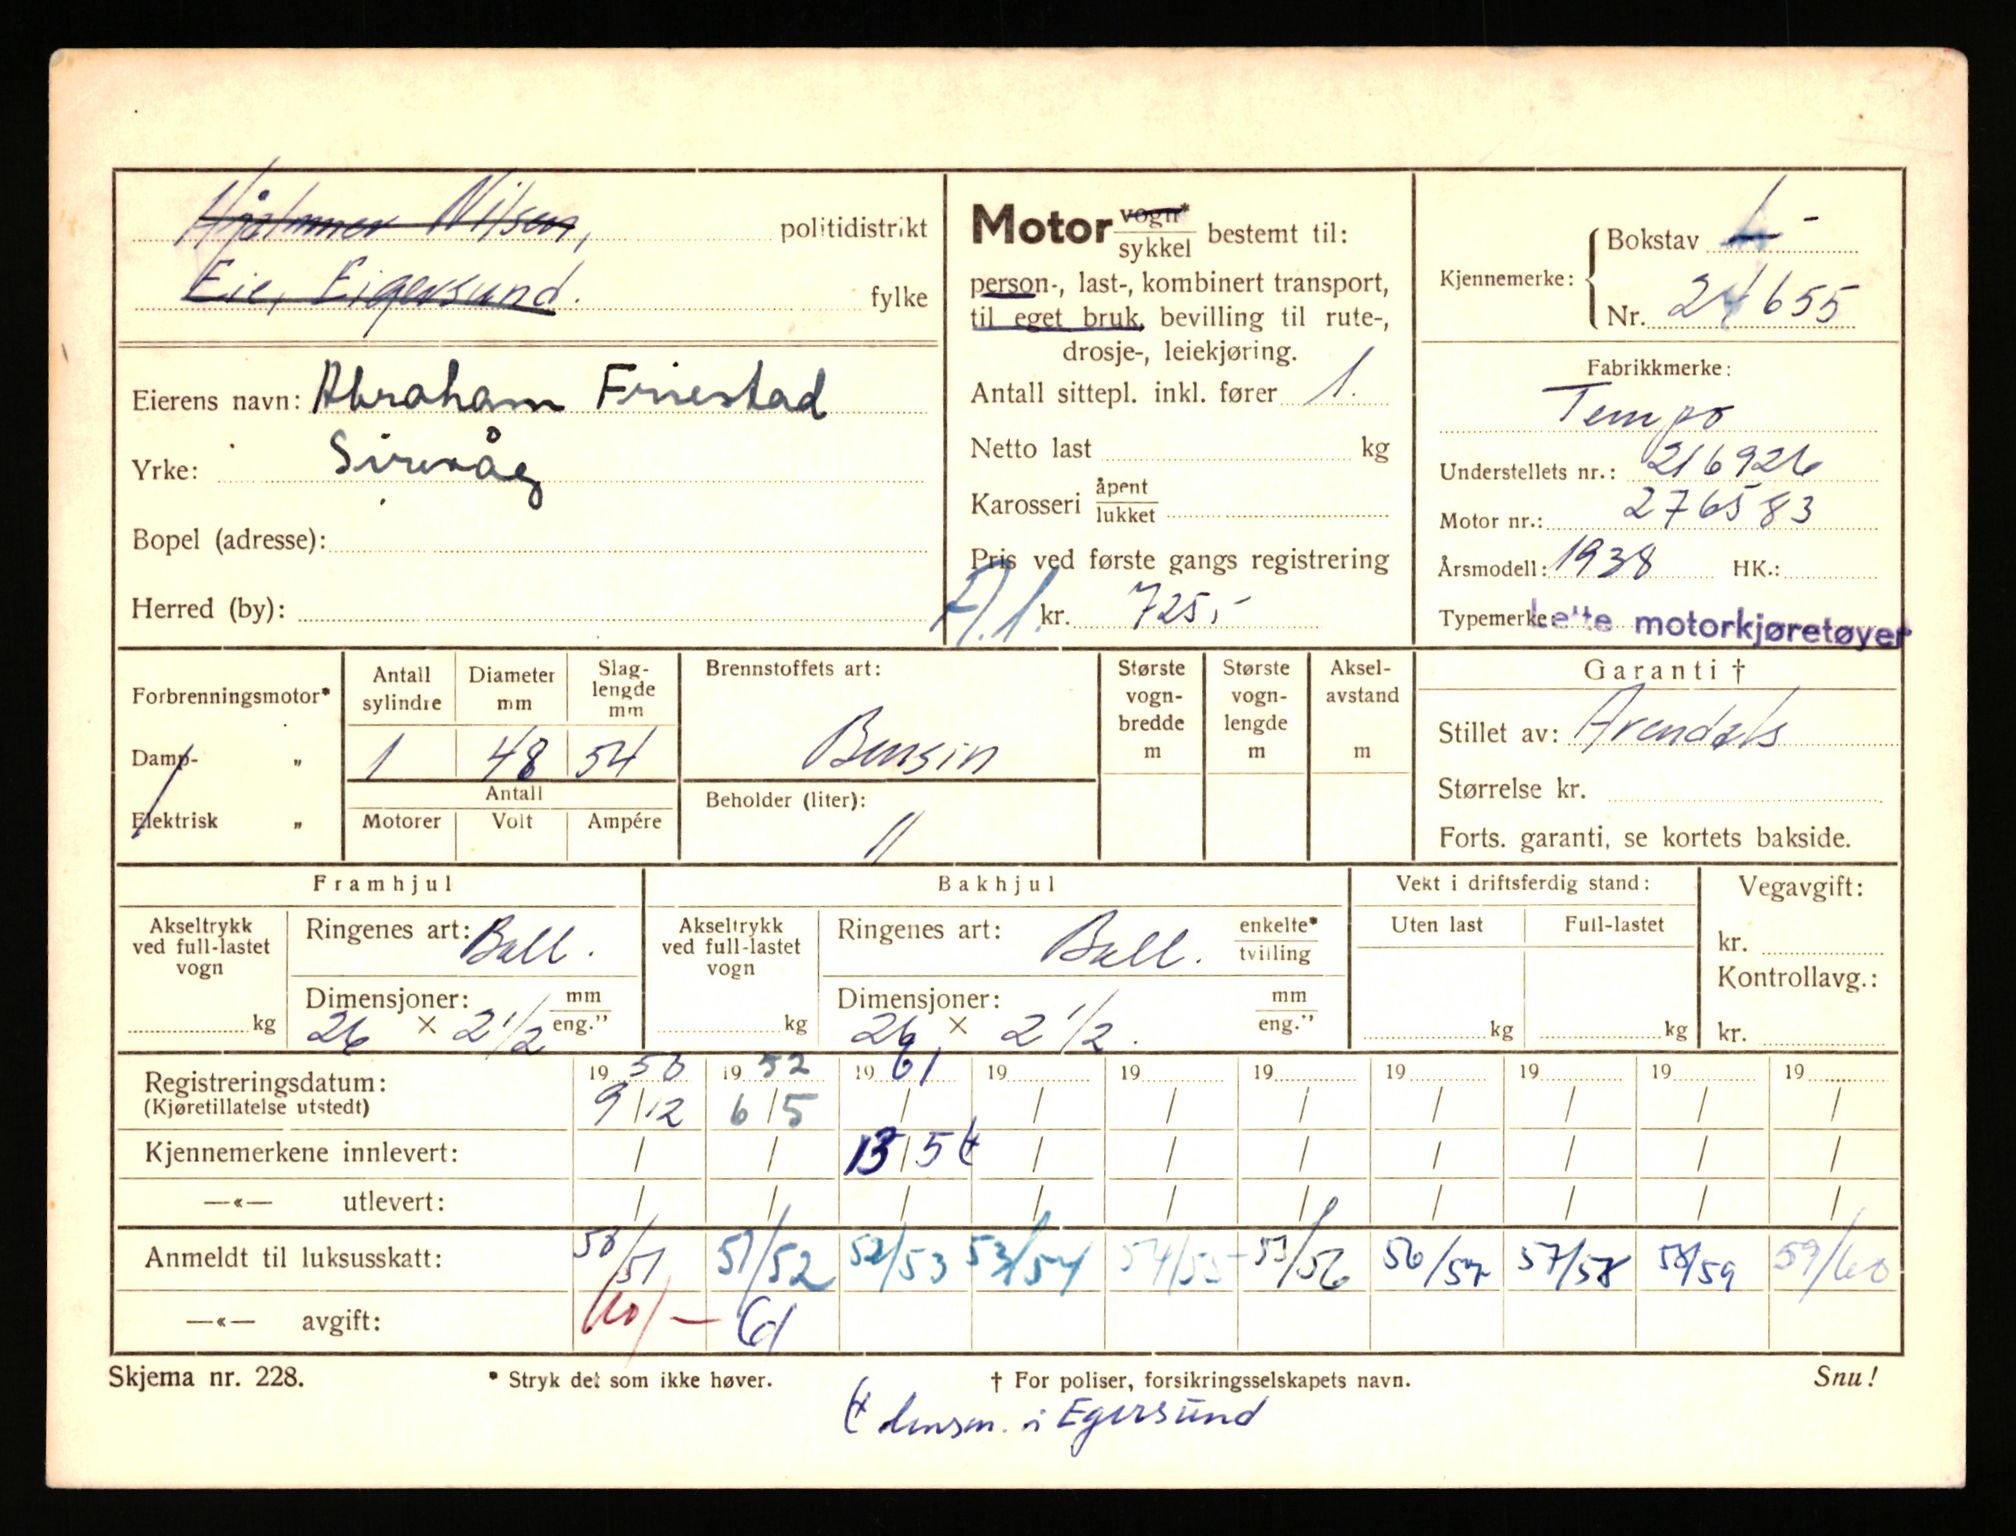 Hjalmar Nilsen, politidistrikt
Eie, Eigersund. fylke
Eierens navn: Abraham Friestad
Yrke: Sirevåg
Bopel (adresse):
Herred (by):
Motor vogn*
sykkel bestemt til:
person-, last-, kombinert transport,
til eget bruk, bevilling til rute-,
drosje-, leiekjøring.
Antall sittepl. inkl. fører 1.
Netto last kg
Karosseri åpent
lukket
Pris ved første gangs registrering
A.1. kr. 725,-
Kjennemerke: Bokstav L-
Nr. 24655
Fabrikkmerke:
Tempo
Understellets nr.: 216926
Motor nr.: 276583
Årsmodell: 1938 HK.:
Typemerke: Lette motorkjøretøyer
Forbrenningsmotor*
Damp- „
Elektrisk „
Antall sylindre Diameter mm Slaglengde mm
1 48 54
Antall
Motorer Volt Ampére
Brennstoffets art:
Bensin
Beholder (liter):
11
Største vognbredde m
Største vognlengde m
Akselavstand m
Garanti †
Stillet av: Arendals
Størrelse kr.
Forts. garanti, se kortets bakside.
Framhjul
Akseltrykk ved full-lastet vogn kg
Ringenes art: Ball.
Dimensjoner: mm
26 x 2 1/2 eng."
Bakhjul
Akseltrykk ved full-lastet vogn kg
Ringenes art: Ball. enkelte*
tvilling
Dimensjoner: mm
26 x 2 1/2. eng."
Vekt i driftsferdig stand:
Uten last Full-lastet
kg kg
Vegavgift:
kr.
Kontrollavg.:
kr.
Registreringsdatum: 19 50 19 52 19 61 19 19 19 19 19 19 19
(Kjøretillatelse utstedt) 9/12 6/5 / / / / / / / /
Kjennemerkene innlevert: / / 13/5 / / / / / / /
—«— utlevert: / / / / / / / / / /
Anmeldt til luksusskatt: 50/51 51/52 52/53 53/54 54/55 55/56 56/57 57/58 58/59 59/60
—«— avgift: 60/— 61
Skjema nr. 228. * Stryk det som ikke høver. † For poliser, forsikringsselskapets navn. Snu!
lensm. i Egersund